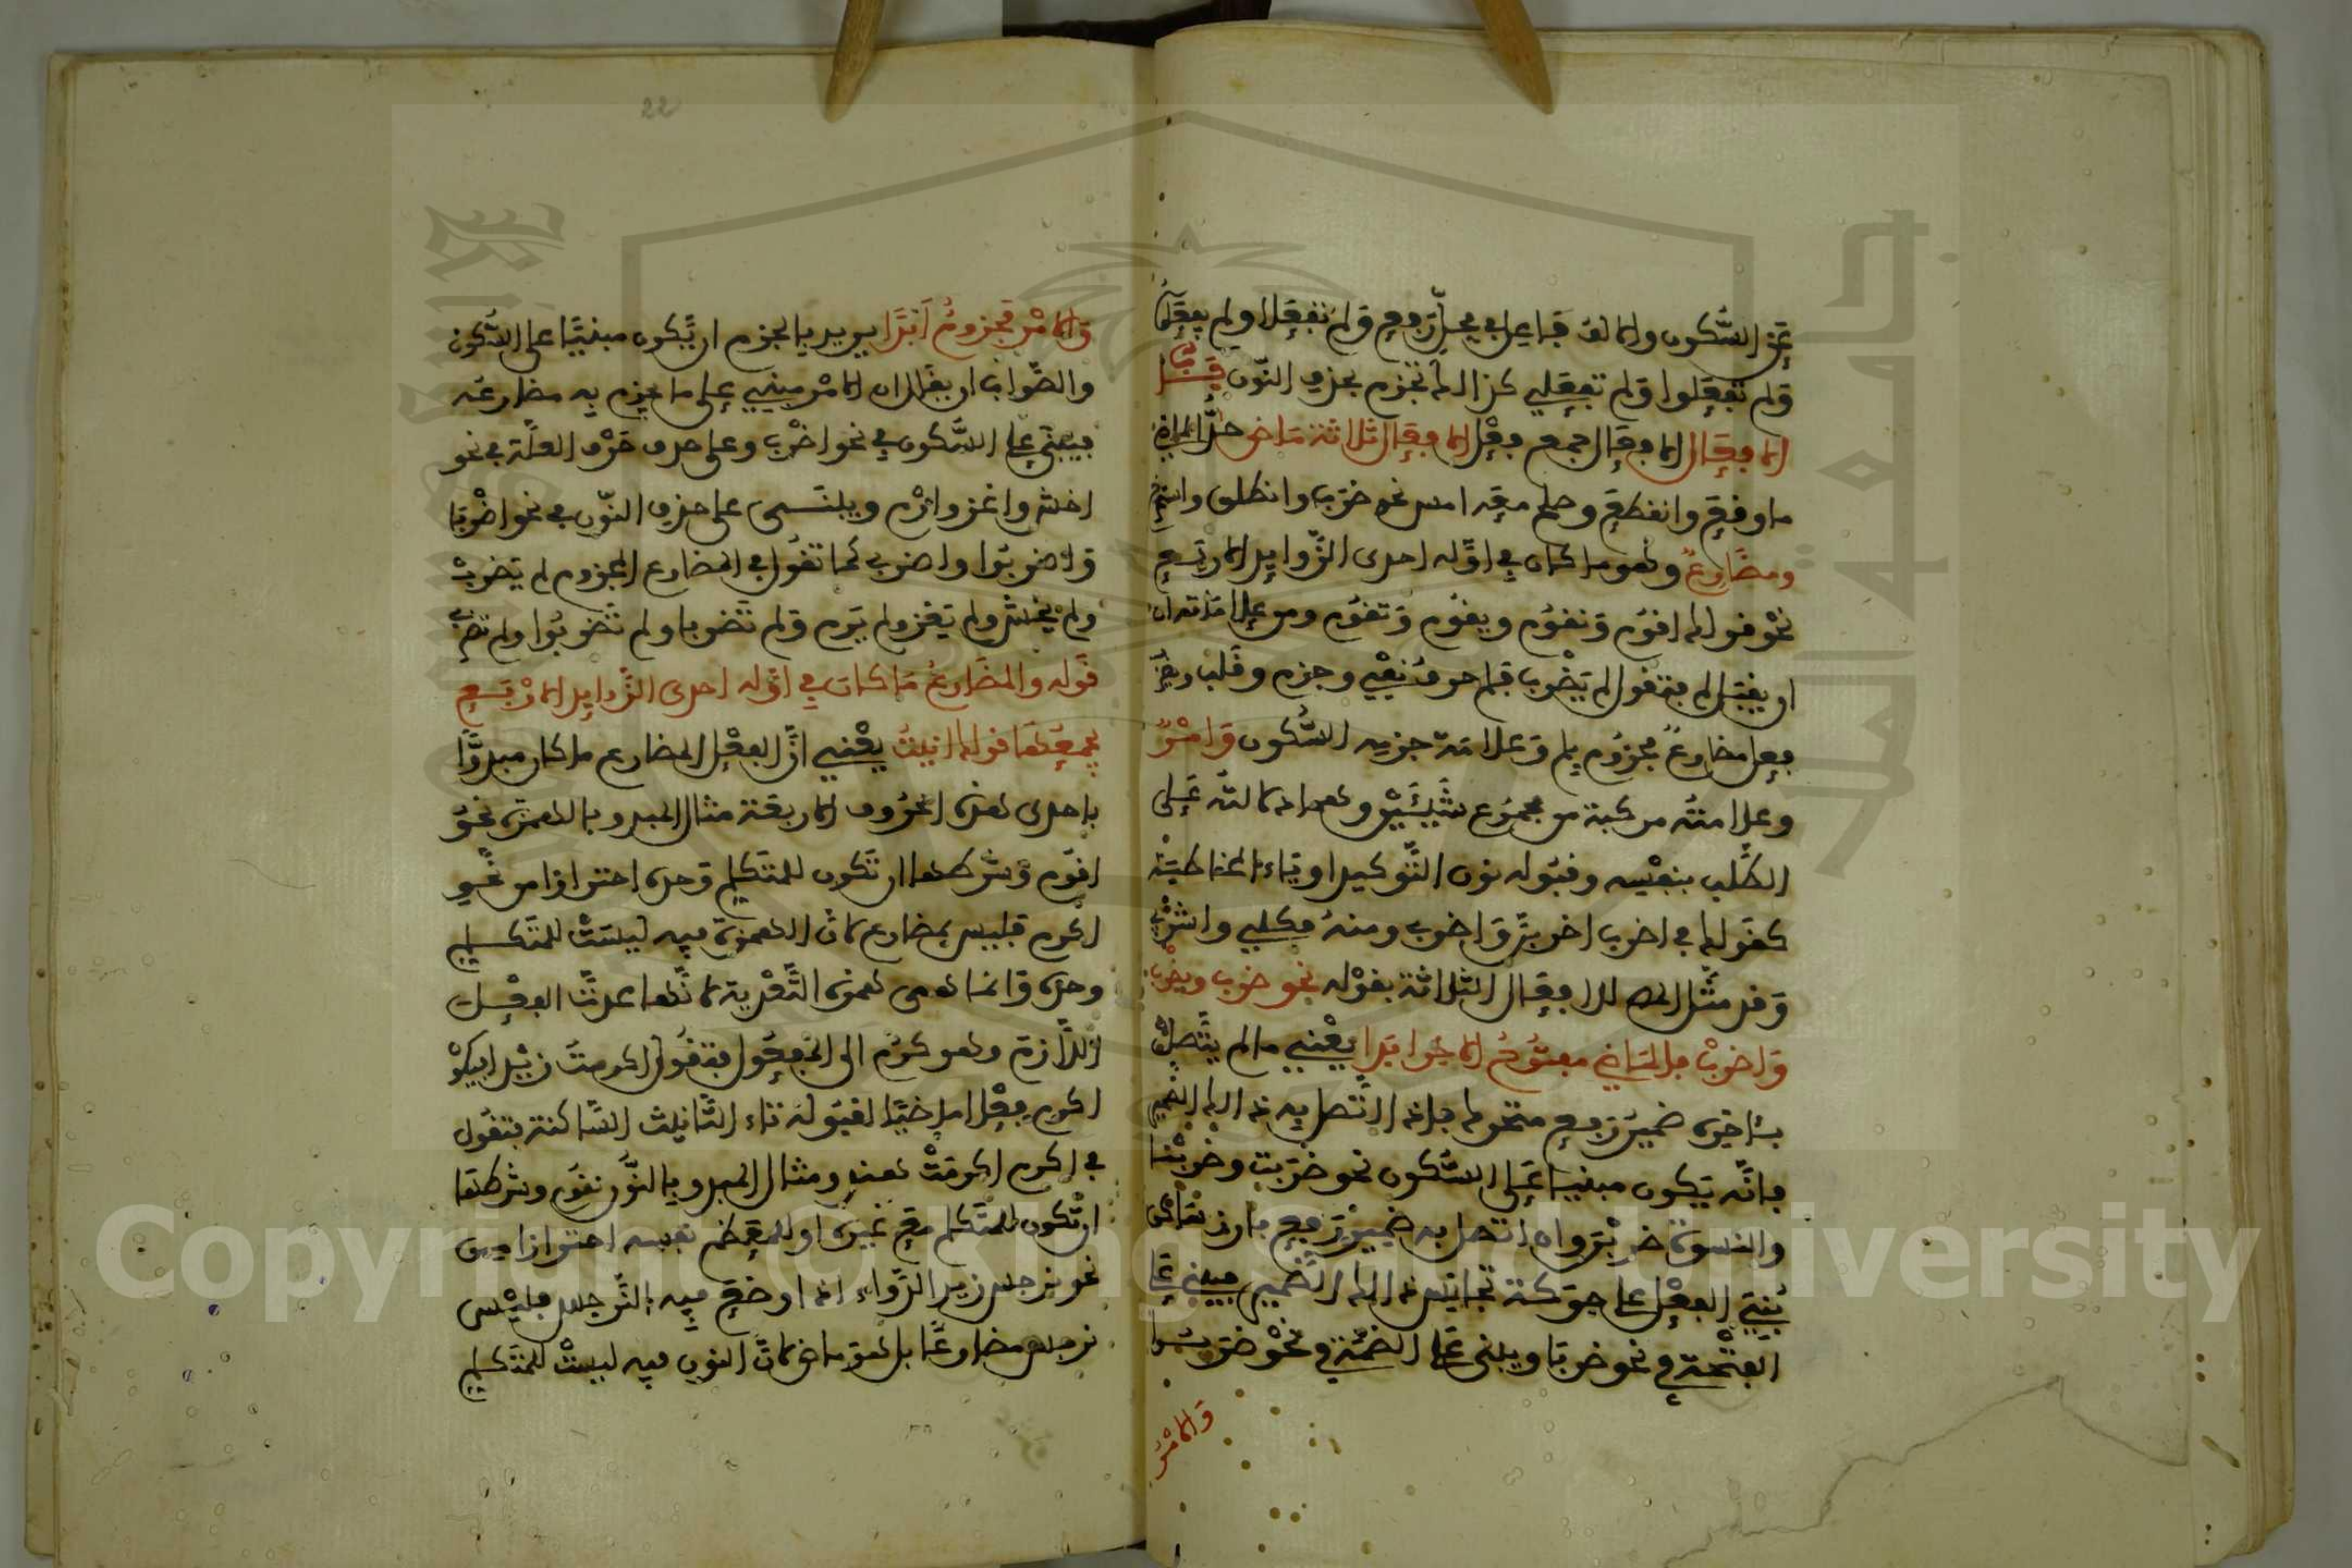 عن السُّكون والالف فاعل في محلّ رَفع وَلم تفعَلا ولم يفعَلا
وَلم تَفعَلوا وَلم تفعَلي كذالك تجزم بحذف النّون بَاب
الافعَال الافعَال جمع فِعْل الافعَال ثلاثة مَاض حدّ الماضي
ما وقعَ وانقطعَ وصلح معَه امس نحو ضرَب وانطلق واستخرج
ومضَارعٌ وهو ما كان في اوّله احدى الزّوايد الاربَع
نحْو قولك اقوُم وَنقوُم ويقوُم وَتقوُم ومن علامَاته ان
يقبَل لم فتقول لم يَضْرب فلم حرفُ نفْي وجزم وقَلب ويضرب
فعل مضارعٌ مجزوُم بلم وَعلامَة جزمه السُّكون وَامْرٌ
وعلامتُه مركبة من مجموُع شَيئَيْن وهما دلالتُه عَلى
الطَّلب بنفْسه وقبُوله نون التَّوكيد او يَاء المخاطبَة
كقَولك في اضرب اضربنَّ وَاضربي ومنهُ فكلي واشْربي
وَقد مثَّل المص للافعَال الثلاثة بقوْله نحو ضرب ويضْرب
وَاضربْ فالمَاضي مفتُوحُ الاخر ابَدا يعْني ما لم يتَّصلْ
بئاخره ضميرُ رَفع متحرك فاذا اتَّصل به ذالك الضمير
فانَّه يَكون مبنيا عَلى السُّكون نحو ضرَبت وضربْنا
والنسوَة ضربْنَ وان اتصل به ضميرُ رَفع بارز غير ذالك
بُنيَ الفعْل على حرَكة تجانس ذالك الضَّمير فيبنى عَلى
الفتْحَة في نحو ضربَا ويبنى عَلى الضمَّة في نحْو ضرَبُوا
وَالامْرُ
22
وَالامْر مَجزومٌ اَبَدًا يريد بالجزم ان يَّكون مبنيًّا على السُّكون
والصَّواب ان يقَال ان الامْر مبني على ما يجزم به مضارعُه
فيبنَى على السُّكون في نحو اضْرب وعلى حذف حَرْف العلَّة في نحو
اخش واغز وارْم ويبنَى على حذف النّون في نحو اضْربَا
وَاضربُوا واضربي كما تقُول في المضارع المجزوم لم يَضربْ
ولمْ يخْش ولم يَغز ولم يَرم وَلم تَضربا ولم تَضربُوا ولم تضربي
قَوله والمضَارعُ مَا كان في اوّله احدى الزَّوايد الارْبَع
يجمعُهَا قولك انيتُ يعْني انَّ الفعْل المضارع ما كان مبدوًّا
باحدى هذه الحرُوف الاربعَة مثال المبدو بالهمزة نحْو
اقوُم وَشرطها ان تَكون للمتكلم وَحده احترازا من نحْو
اكرم فليس بمضارع لانَّ الهمزَة فيه ليسَتْ للمتَكلم
وحدَه وَانما هي همزة التَّعْدية لانَّها عدّت الفعْل
اللَّازم وهو كرُم الى المفعُول فتقُول اكرمتُ زيْدا فيكون
اكرم فعْلا ماضيًا لقبُوله تاء التَّانيث السَّاكنة فتقُول
في اكرم اكرمَتْ هند ومثال المبدو بالنُّون نقُوم وشرطهَا
ان تَّكون للمتَكلم معَ غيْره او للمعَظم نفسه احترازا من
نحو نرجس زيد الدَّواء اذا وضعَ فيه النَّرجس فليْس
نرجس مضارعًا بل هوَ ماض لانَّ النون فيه ليستْ للمتَكلم
Copyright © King Saud University